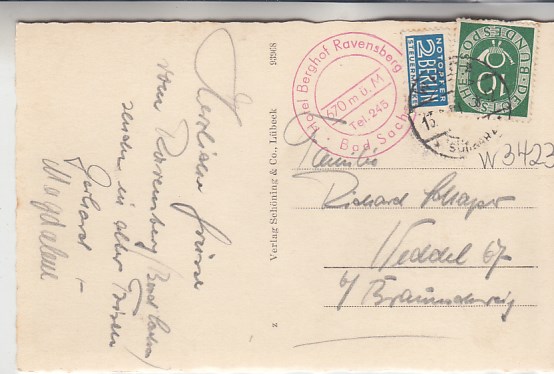 Herzliche Grüße
vom Ravensberg/Bad Sachsa
senden in alter Frische
Gerhard +
Magdalene
93968
Verlag Schöning & Co., Lübeck
z
Hotel Berghof Ravensberg
670 m ü. M
Tel. 245
Bad Sachsa
NOTOPFER
2 BERLIN
STEUERMARKE
DEUTSCHE BUNDESPOST
10
W3423
Familie
Richard
Weddel 67
b/ Braunschweig